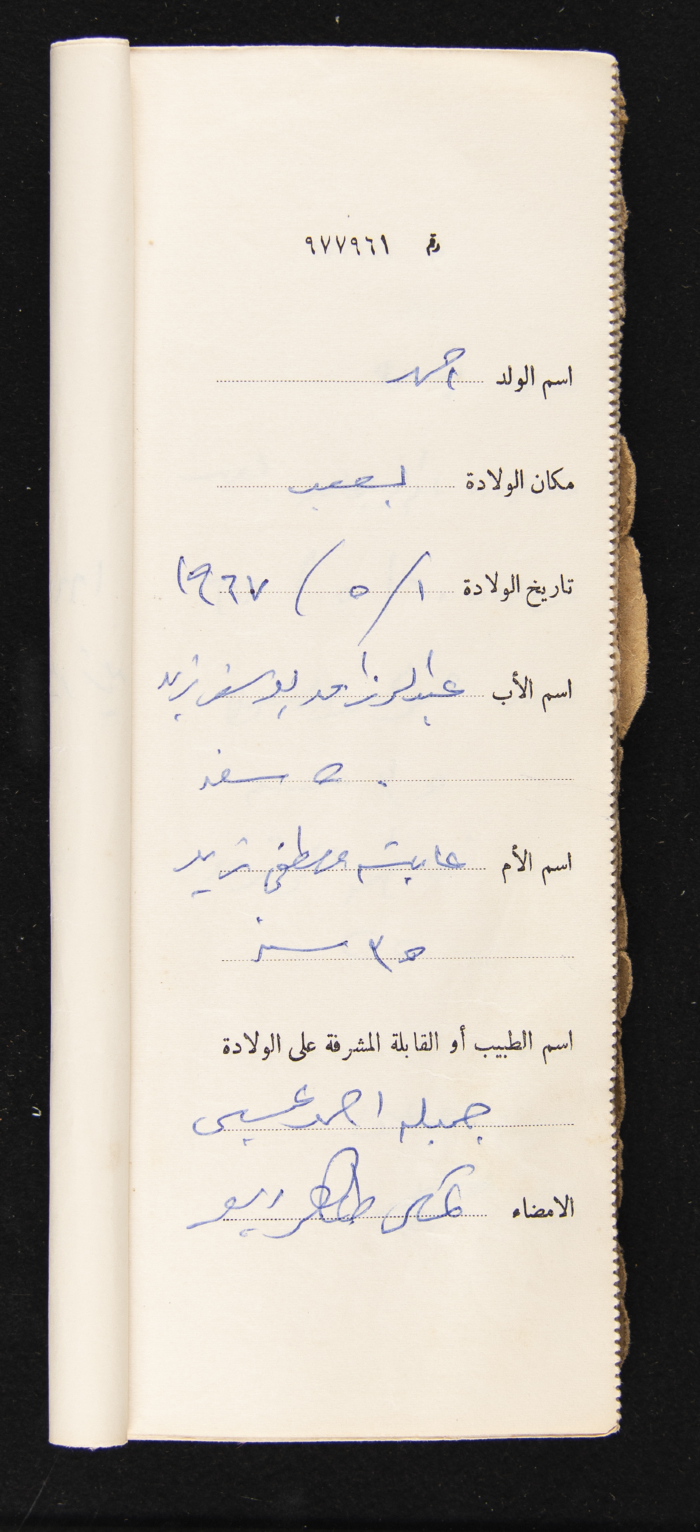 رقم ٩٧٧٩٦١
اسم الولد احمد
مكان الولادة يعبد
تاريخ الولادة ١ / ٥ / ١٩٦٧
اسم الأب عبدالرزا يوسف زيد
٥٠ سنه
اسم الأم عايشه مصطفى زيد
٣٥ سنه
اسم الطبيب أو القابلة المشرفة على الولادة
جميله احمد عيسى
الامضاء